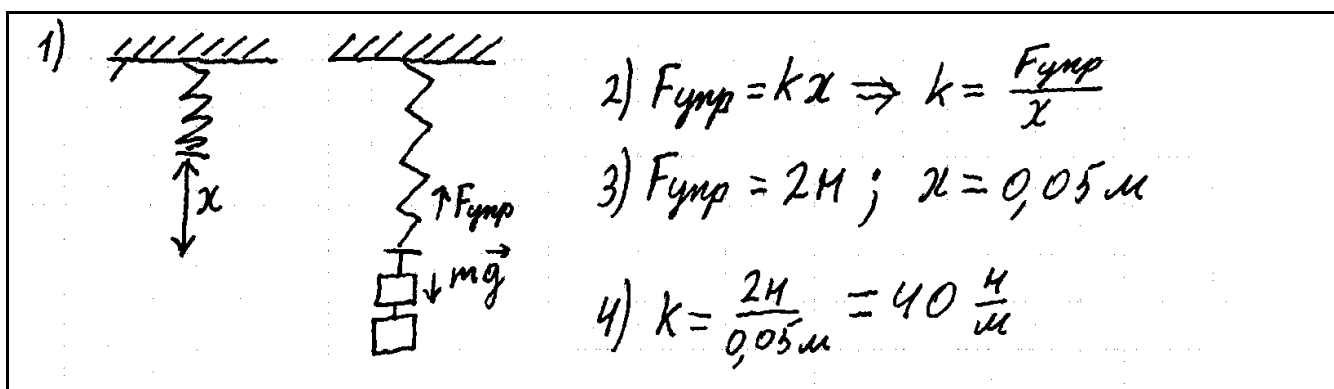 1)
x
↑Fупр
↓mg⃗
2) Fупр = kx ⇒ k = Fупр / x
3) Fупр = 2Н ; x = 0,05 м
4) k = 2Н / 0,05м = 40 Н/м